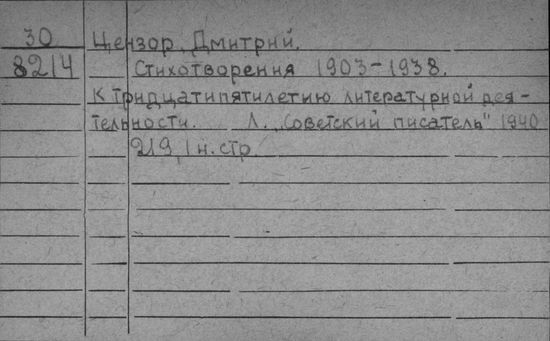 30
8214
Цензор, Дмитрий.
Стихотворения 1903-1938.
К тридцатипятилетию литературной дея-
тельности. Л. „Советский писатель" 1940
219, 1 н. стр.